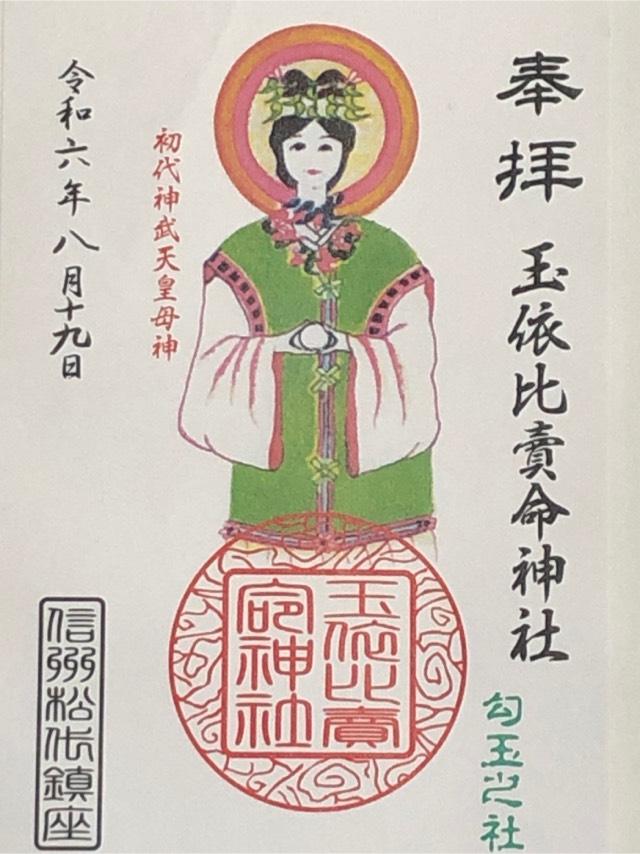 奉拝
玉依比賣命神社
勾玉之社
初代神武天皇母神
令和六年八月十九日
玉依比賣
命神社
信州松代鎮座